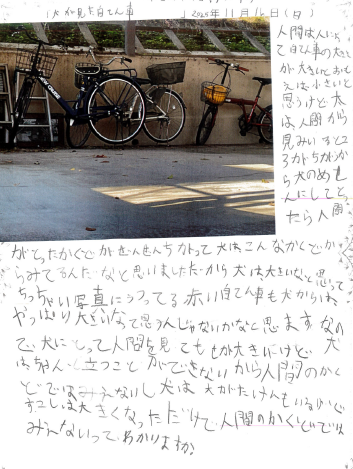 犬が見た自てん車
2025年11月16日(日)
人間は人によっ
て自てん車の大きさ
が大きいとおも
えば小さいと
思うけど犬
は人間から
見みいるところ
るがちがうか
ら犬のめせ
んにしてと
たら人間
がとったかくどがぜんぜんちがって犬はこんなかくどか
らみてるんだなと思いましただから犬は大きいなと思って
ちっちゃい写真にうつってる赤い自てん車も犬からは
やっぱり大きいなって思うんじゃないかなと思ますなの
で、犬にとって人間を見てもとても大きいけど犬
はちゃんと立つことができないから人間のかく
どではみえないし犬は大がたけんもいるけど
すこしは大きくなっただけで人間のかくどでは
みえないってわかりますか?